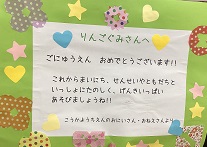 りんごぐみさんへ
ごにゅうえん　おめでとうございます!!
これからまいにち、せんせいやともだちと
いっしょにたのしく、げんきいっぱい
あそびましょうね!!
こうかようちえんのおにいさん・おねえさんより